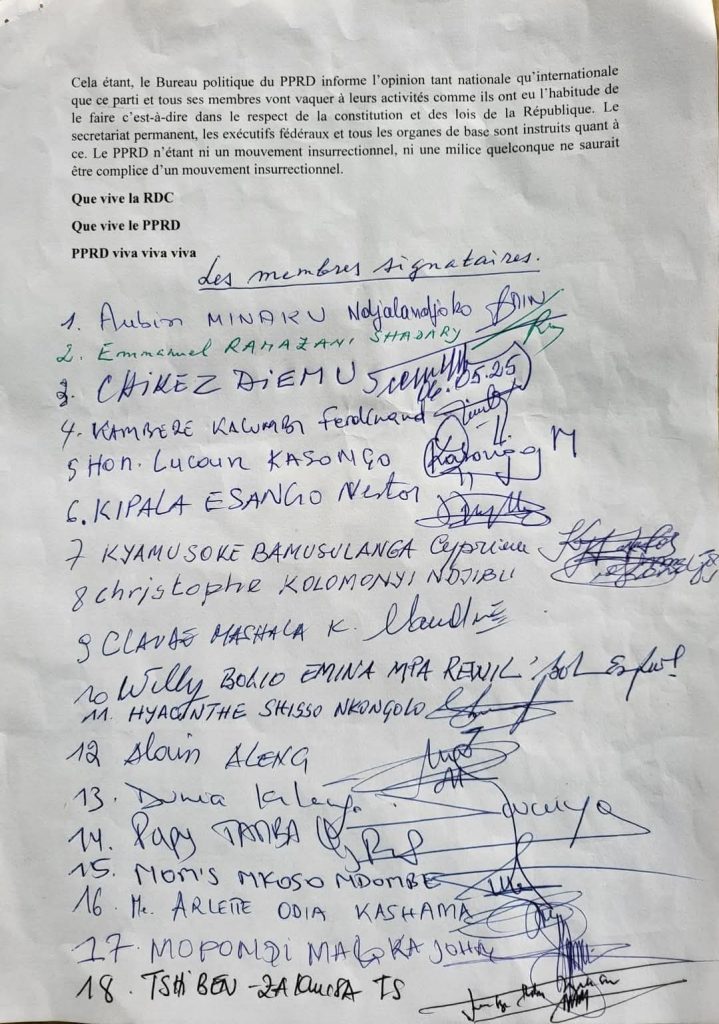 Cela étant, le Bureau politique du PPRD informe l'opinion tant nationale qu'internationale
que ce parti et tous ses membres vont vaquer à leurs activités comme ils ont eu l'habitude de
le faire c'est-à-dire dans le respect de la constitution et des lois de la République. Le
secretariat permanent, les exécutifs fédéraux et tous les organes de base sont instruits quant à
ce. Le PPRD n'étant ni un mouvement insurrectionnel, ni une milice quelconque ne saurait
être complice d'un mouvement insurrectionnel.
Que vive la RDC
Que vive le PPRD
PPRD viva viva viva
Les membres signataires.
1. Aubin MINAKU Ndjalandjoko
2. Emmanuel RAMAZANI SHADARY
3. CHIKEZ DIEMU 06.05.25
4. KAMBERE KALUMBI Ferdinand
5 Hon. Lucain KASONGO Kasongo M
6. KIPALA ESANGO Nestor
7 KYAMUSOKE BAMUSULANGA Cyprien
8 Christophe KOLOMONYI NDJIBU
9 CLAUDE MASHALA K.
10 Willy BOLIO EMINA MPA REWIL
11. HYACINTHE SHISSO NKONGOLO
12 Alain ALENG
13. Dunia
14. Papy TAMBA
15. MOMIS MKOSO NDOMBE
16 Me. ARLETTE ODIA KASHAMA
17. MOPONDI JOHN
18. TSHIBEN